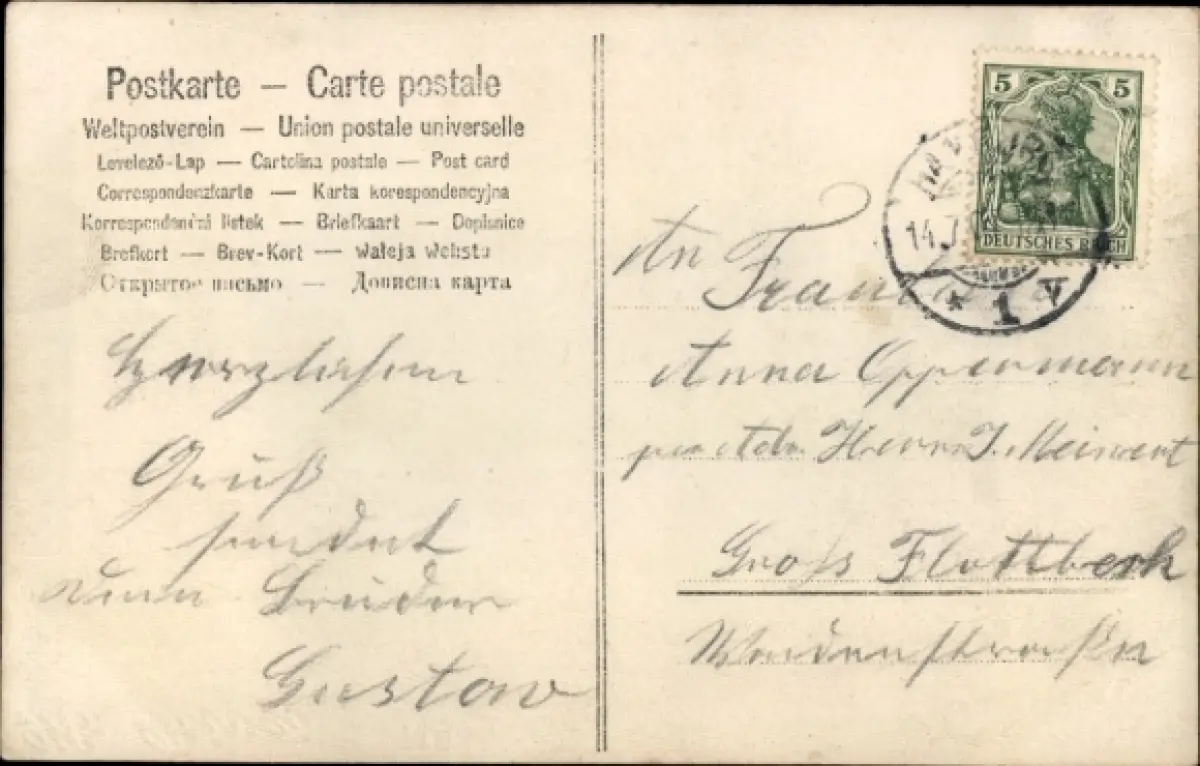 Postkarte — Carte postale
Weltpostverein — Union postale universelle
Levelező-Lap — Cartolina postale — Post card
Correspondenzkarte — Karta korespondencyjna
Korrespondenční lístek — Briefkaart — Dopisnice
Brefkort — Brev-Kort —
Открытое письмо — Дописна карта
Herzlichen
Gruß
sendet
dein Bruder
Gustav
5 5
DEUTSCHES REICH
14.
* 1 V
An
Anna Oppermann
Herrn J.
Groß Flottbeck
Weidenstraße